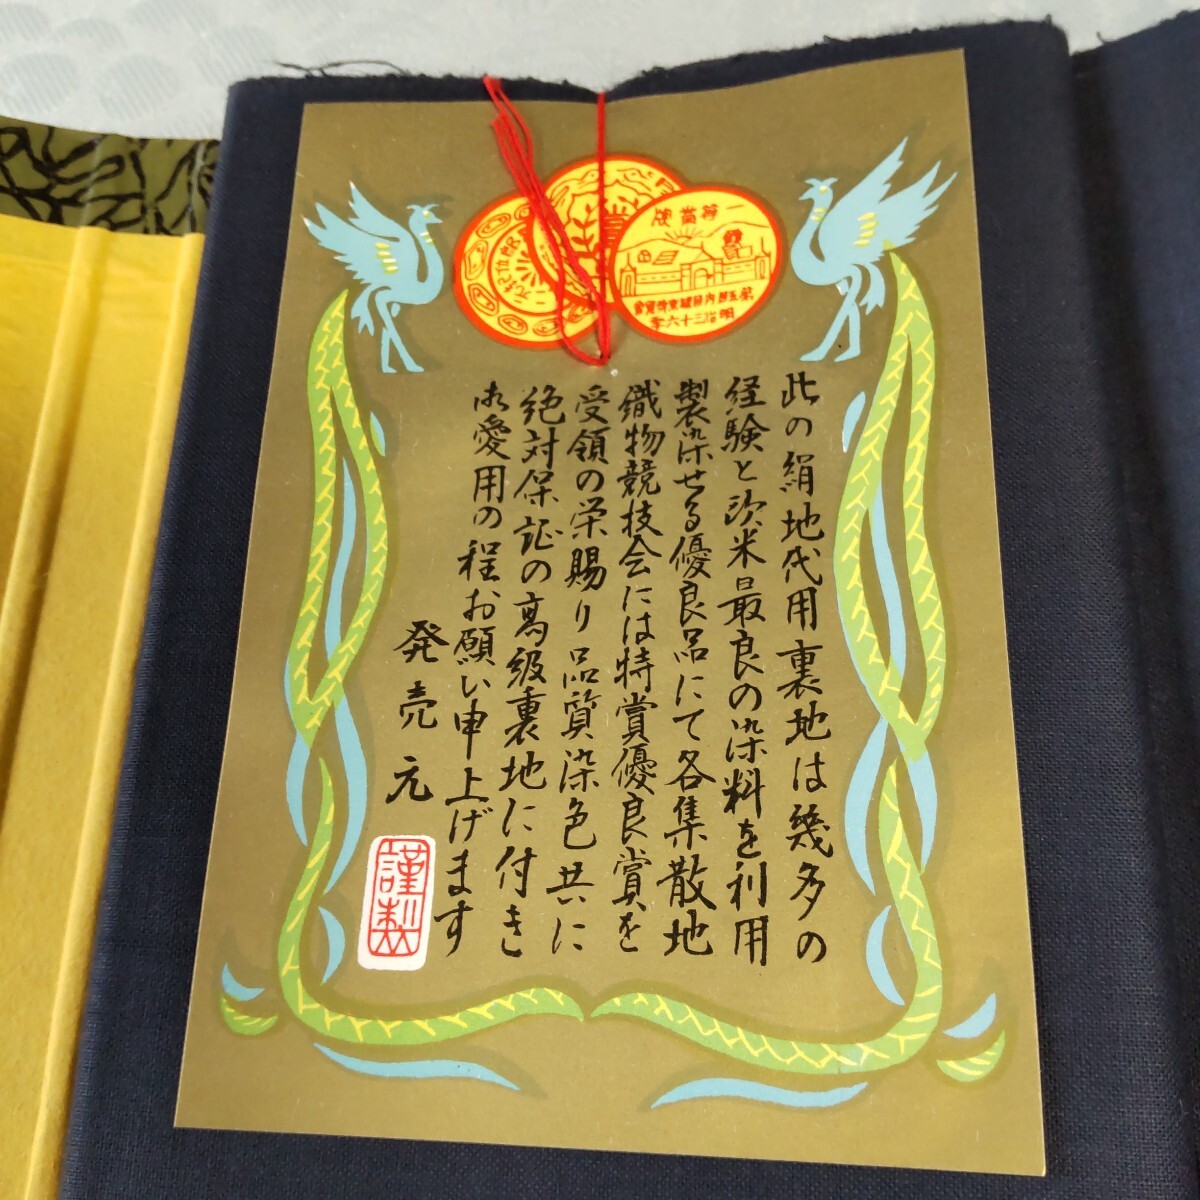 一等賞牌
明治三十六年
此の絹地代用裏地は幾多の
経験と欧米最良の染料を利用
製染せる優良品にて各集散地
織物競技会には特賞優良賞を
受領の栄賜り品質染色共に
絶対保証の高級裏地に付き
御愛用の程お願い申上げます
発売元
謹製